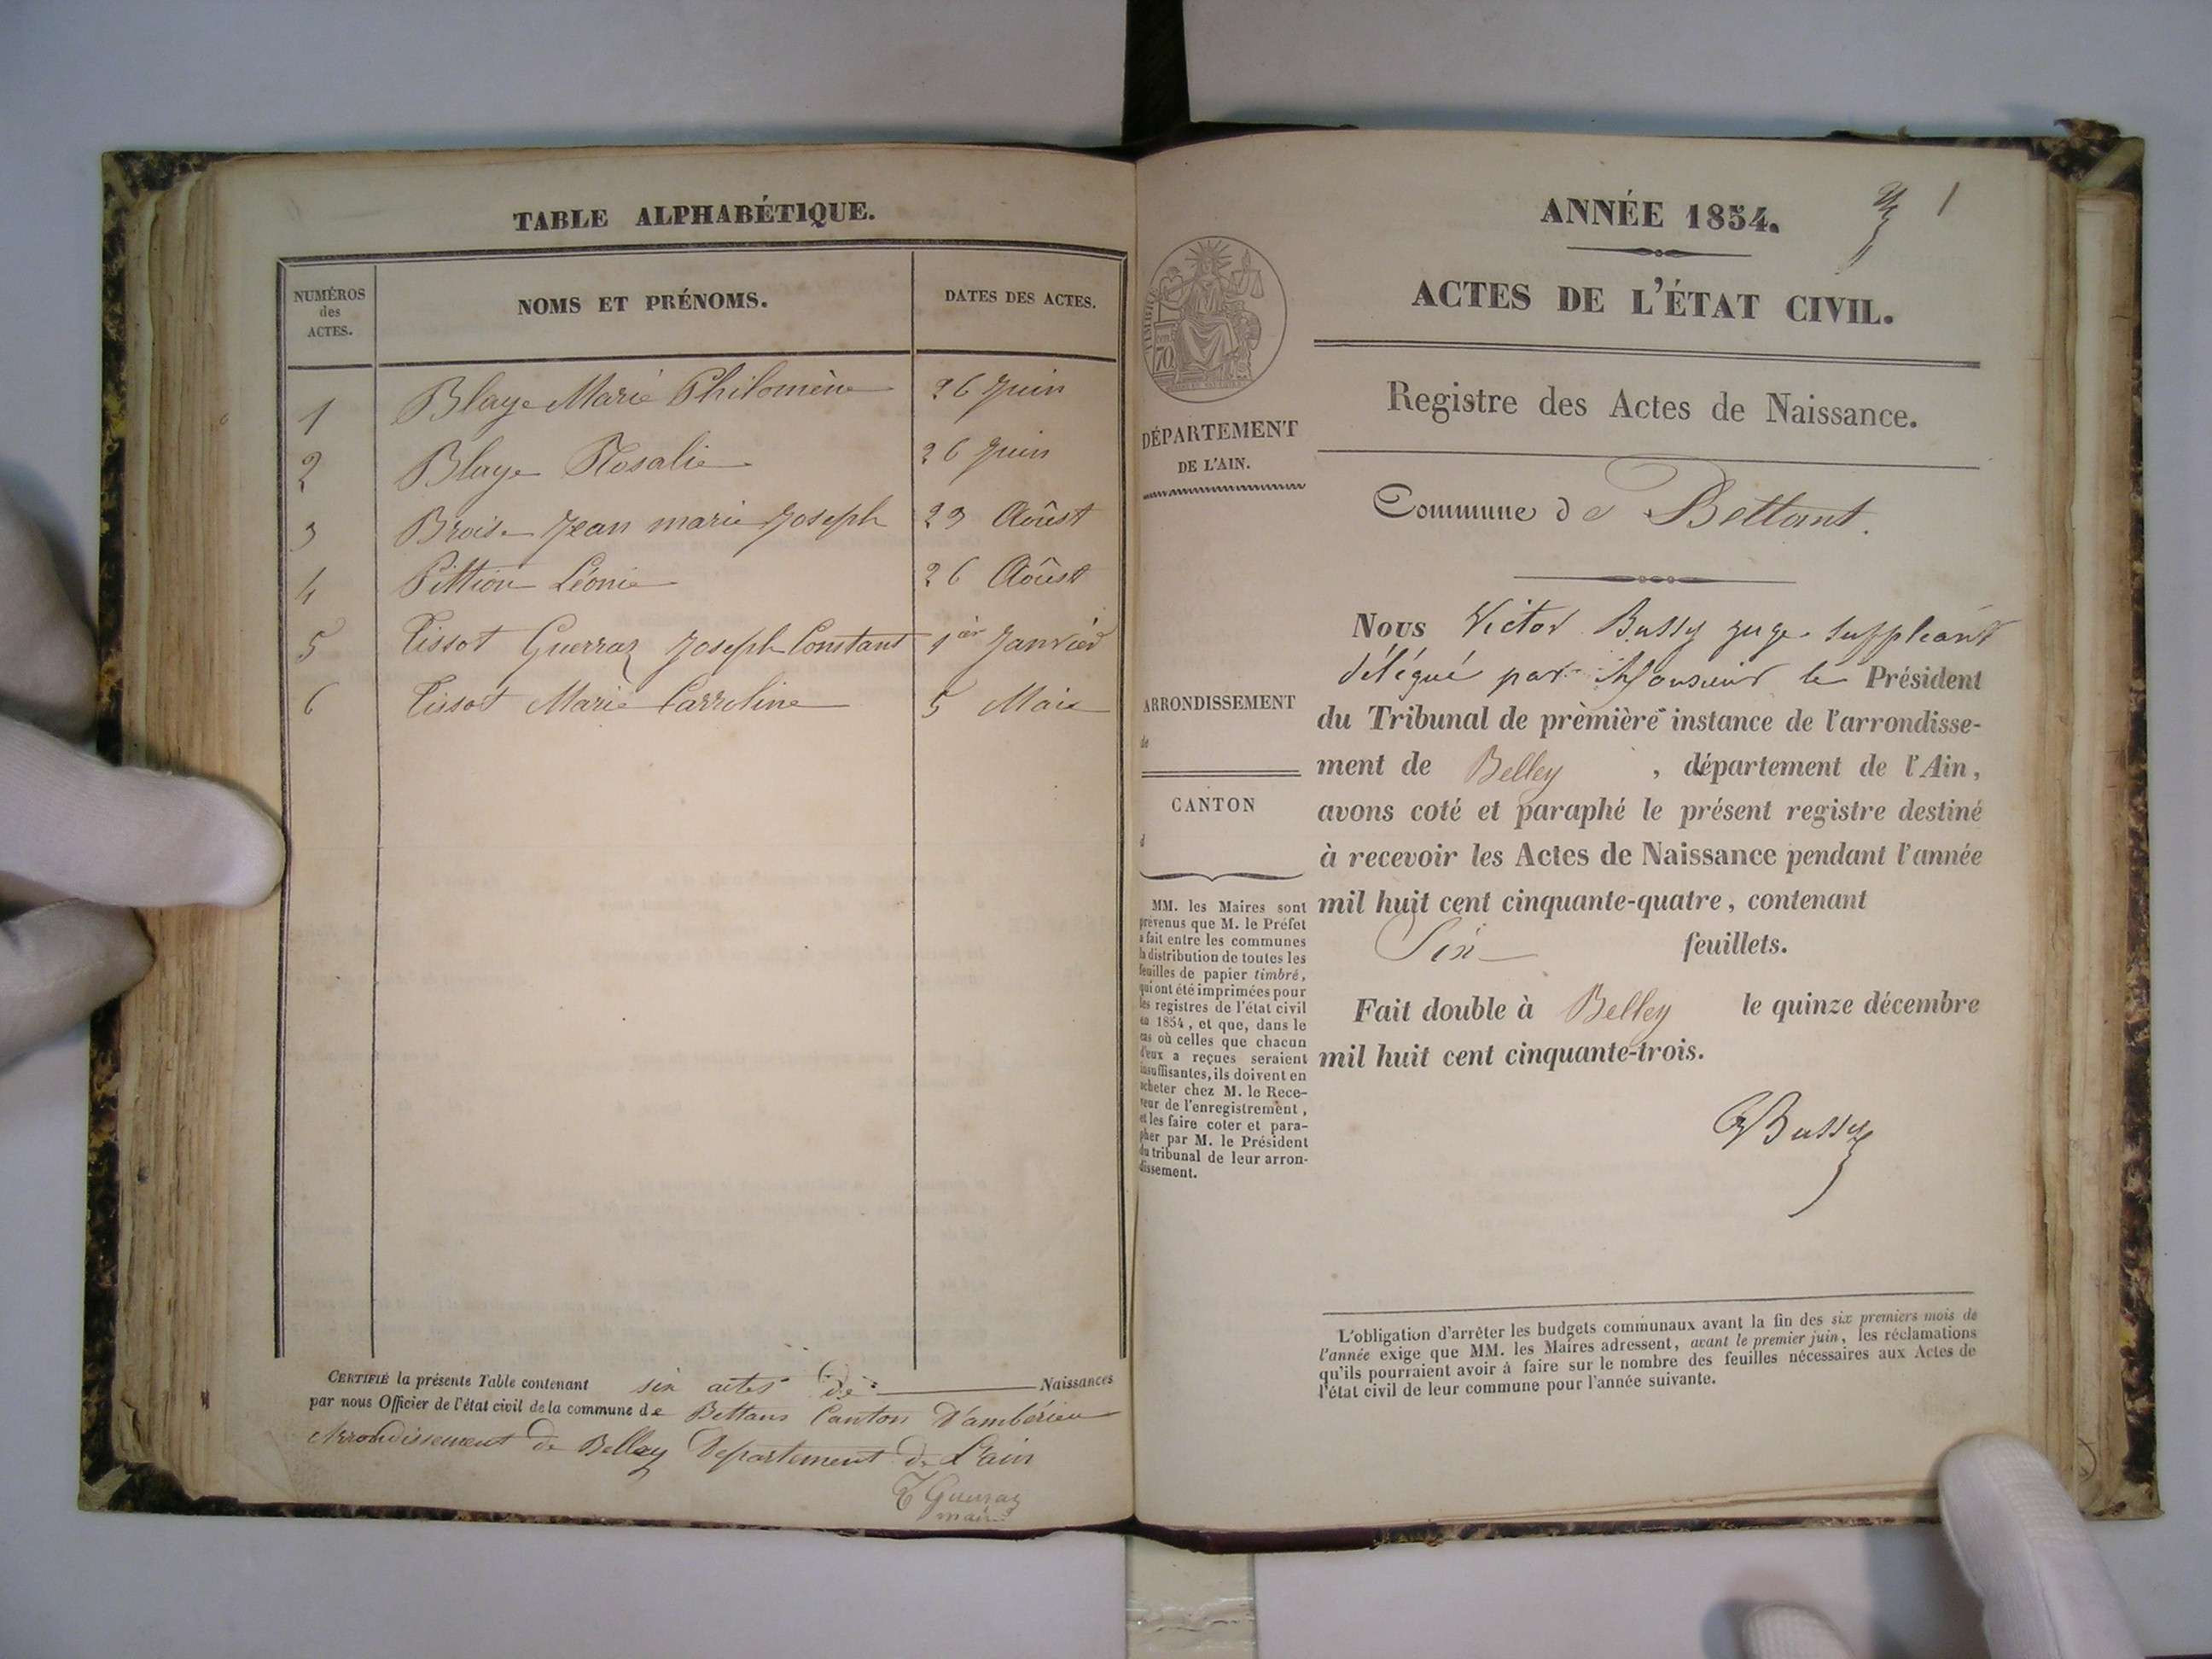 TABLE ALPHABÉTIQUE.
NUMÉROS
des
ACTES.
NOMS ET PRÉNOMS.
DATES DES ACTES.
1 Blaye Marie Philomène 26 Juin
2 Blaye Rosalie 26 Juin
3 Jean marie Joseph 23 Aôust
4 Pittion Léonie 26 Aôust
5 Tissot Guerraz Joseph Constant 1er Janvier
6 Tissot Marie Carroline 5 Mai
CERTIFIÉ la présente Table contenant six actes de Naissances
par nous Officier de l'état civil de la commune de Bettans Canton d'ambérieu
Arrondissement de Belley Departement de L'ain
Guerraz
maire
1
ANNÉE 1854.
ACTES DE L'ÉTAT CIVIL.
Registre des Actes de Naissance.
TIMBRE
70
DÉPARTEMENT
DE L'AIN.
Commune de Bettant.
ARRONDISSEMENT
de
CANTON
d
MM. les Maires sont
prévenus que M. le Préfet
a fait entre les communes
la distribution de toutes les
feuilles de papier timbré,
qui ont été imprimées pour
les registres de l'état civil
en 1854, et que, dans le
cas où celles que chacun
d'eux a reçues seraient
insuffisantes, ils doivent en
acheter chez M. le Rece-
veur de l'enregistrement,
et les faire coter et para-
pher par M. le Président
du tribunal de leur arron-
dissement.
Nous Victor Bussy juge suppléant
délégué par Monsieur le Président
du Tribunal de première instance de l'arrondisse-
ment de Belley, département de l'Ain,
avons coté et paraphé le présent registre destiné
à recevoir les Actes de Naissance pendant l'année
mil huit cent cinquante-quatre, contenant
Six feuillets.
Fait double à Belley le quinze décembre
mil huit cent cinquante-trois.
VBussy
L'obligation d'arrêter les budgets communaux avant la fin des six premiers mois de
l'année exige que MM. les Maires adressent, avant le premier juin, les réclamations
qu'ils pourraient avoir à faire sur le nombre des feuilles nécessaires aux Actes de
l'état civil de leur commune pour l'année suivante.